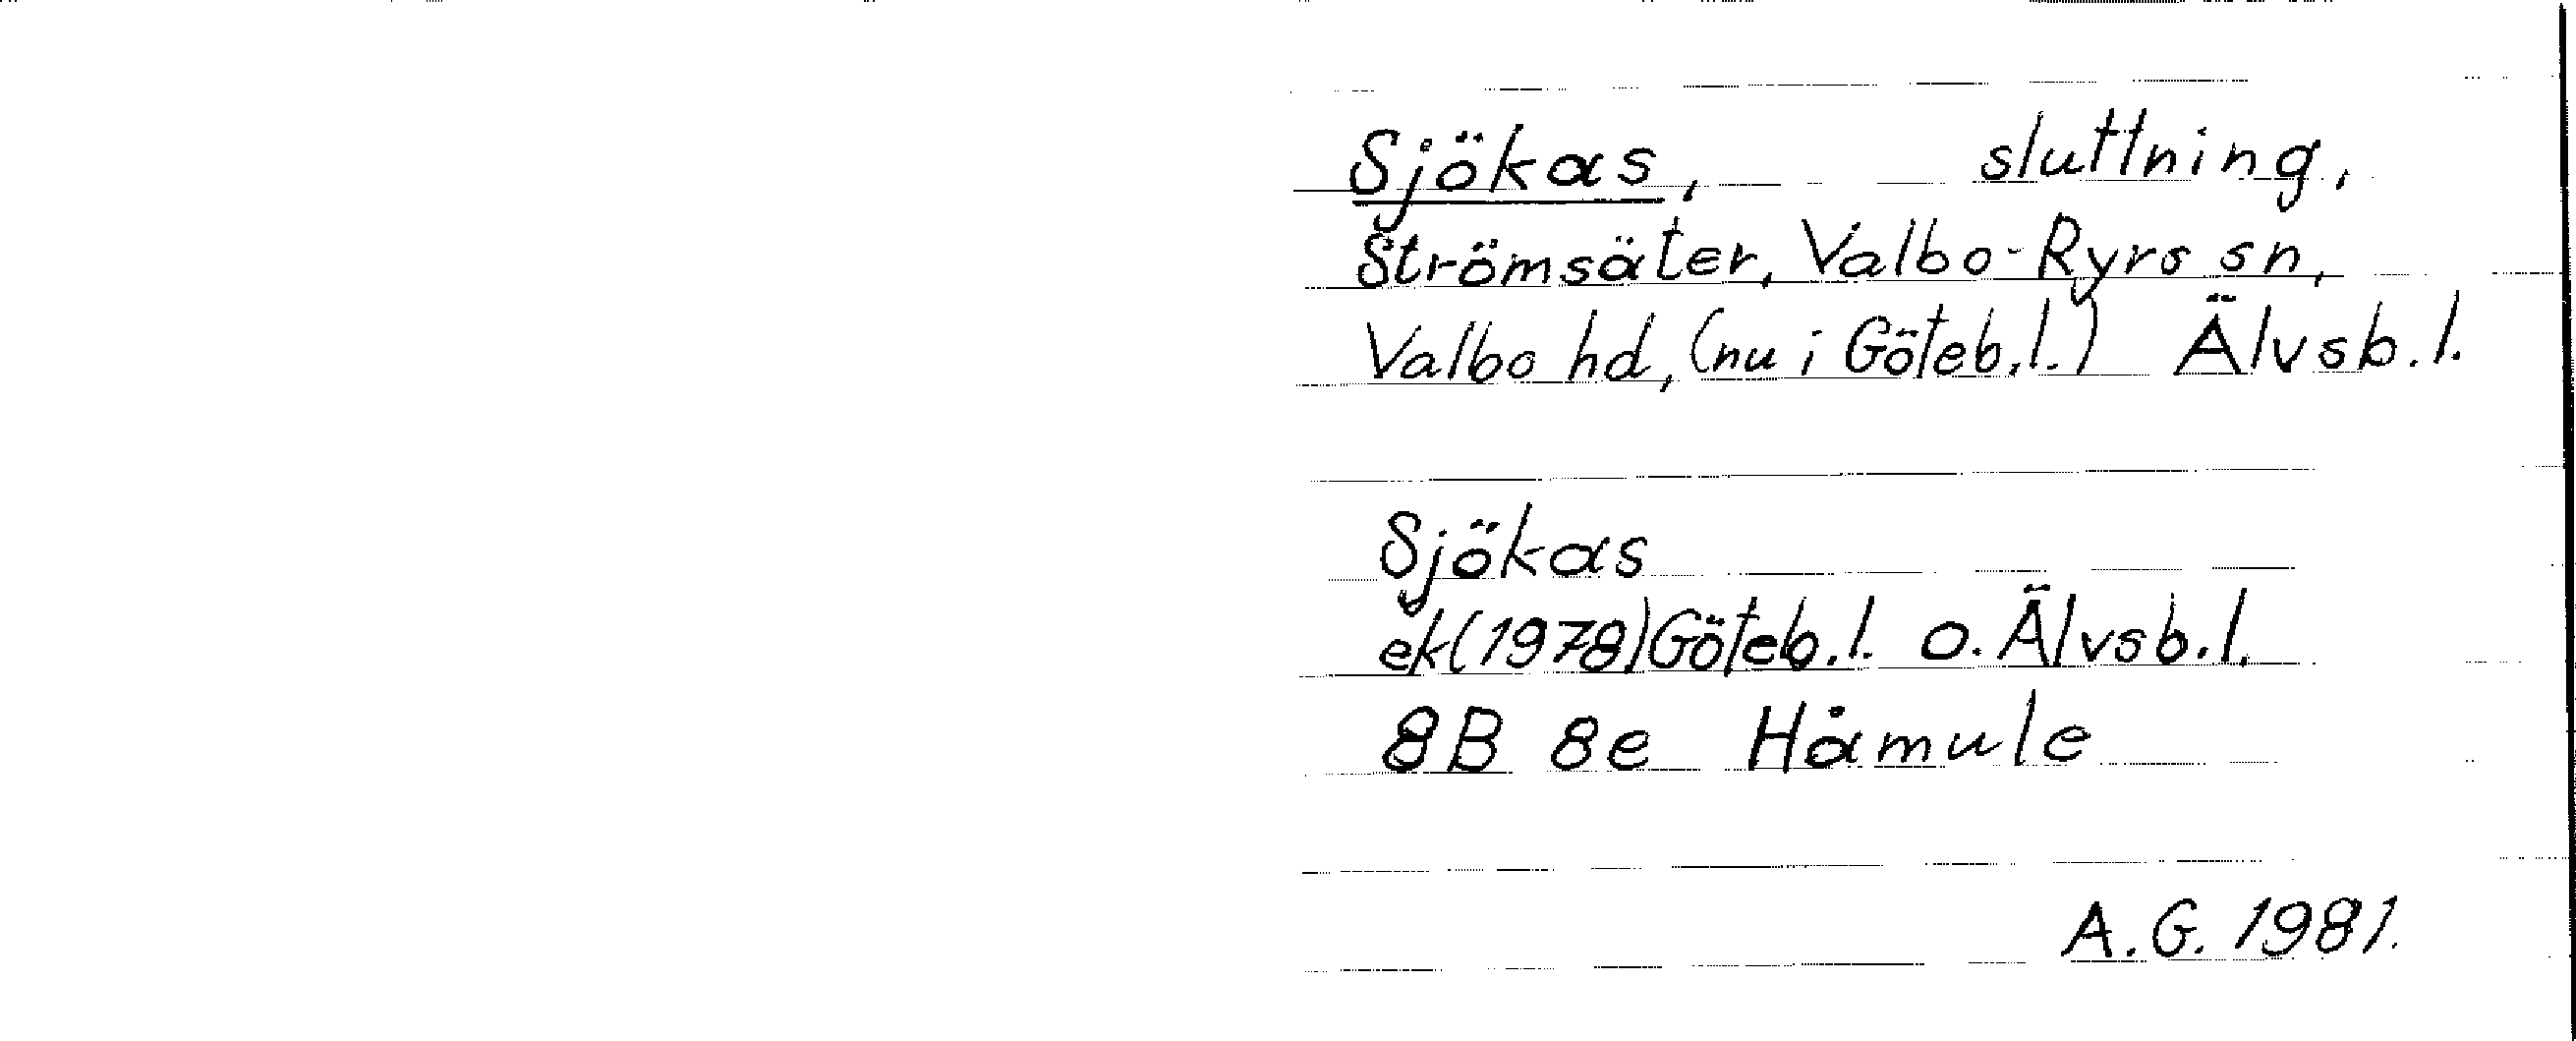 Sjökas, sluttning,
Strömsäter, Valbo-Ryrs sn,
Valbo hd, (nu i Göteb.l.) Älvsb.l.
Sjökas
ek(1978)Göteb.l. o. Älvsb.l.
8B 8e Håmule
A.G. 1981.